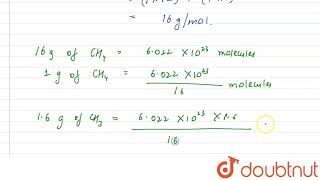 = 16 g/mol.
16 g of CH4 = 6.022 × 10^23 molecules
1 g of CH4 = 6.022 × 10^23 / 16 molecules
1.6 g of CH3 = 6.022 × 10^23 × 1.6 / 16
doubtnut